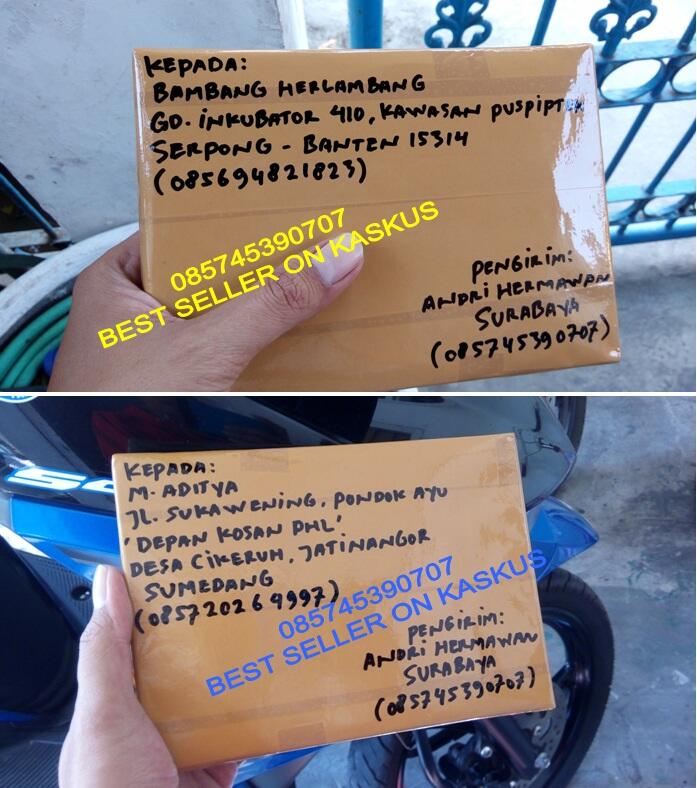 KEPADA:
BAMBANG HERLAMBANG
GD. INKUBATOR 410, KAWASAN PUSPIPTEK
SERPONG - BANTEN 15314
(085694821823)
085745390707
BEST SELLER ON KASKUS
PENGIRIM:
ANDRI HERMAWAN
SURABAYA
(085745390707)
KEPADA:
M. ADITYA
JL. SUKAWENING, PONDOK AYU
'DEPAN KOSAN PHL'
DESA CIKERUH, JATINANGOR
SUMEDANG
(085720264997)
085745390707
BEST SELLER ON KASKUS
PENGIRIM:
ANDRI HERMAWAN
SURABAYA
(085745390707)